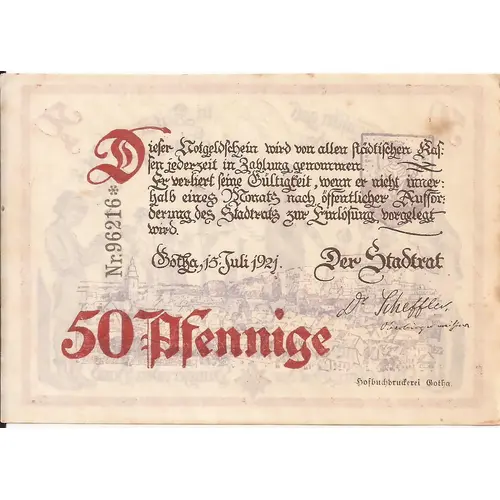 Dieser Notgeldschein wird von allen städtischen Kas-
sen jederzeit in Zahlung genommen.
Er verliert seine Gültigkeit, wenn er nicht inner-
halb eines Monats nach öffentlicher Auffor-
derung des Stadtrats zur Einlösung vorgelegt
wird.
Gotha, 15. Juli 1921.
Der Stadtrat
Dr Scheffler
Oberbürgermeister
50 Pfennige
Nr. 96216*
Hofbuchdruckerei Gotha.